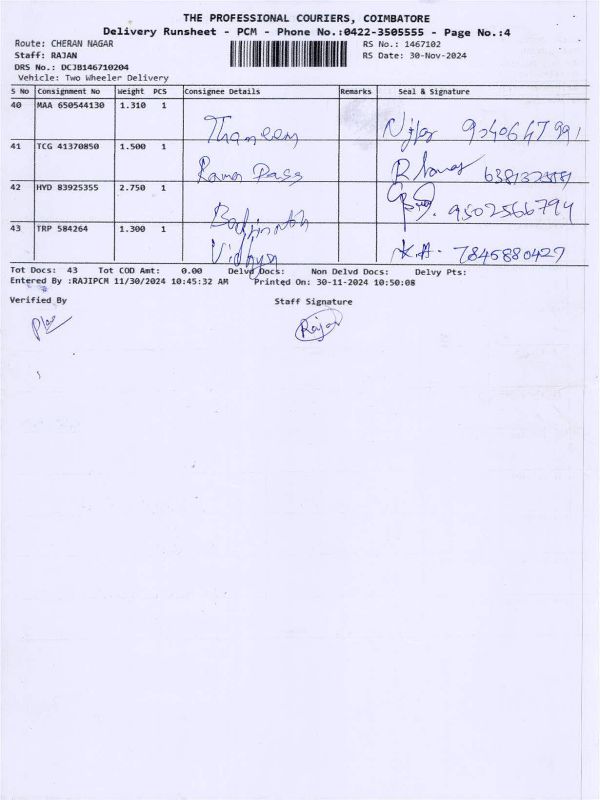 THE PROFESSIONAL COURIERS, COIMBATORE
Delivery Runsheet - PCM - Phone No.:0422-3505555 - Page No.:4
Route: CHERAN NAGAR RS No.: 1467102
Staff: RAJAN RS Date: 30-Nov-2024
DRS No.: DCJB146710204
Vehicle: Two Wheeler Delivery
S No Consignment No Weight PCS Consignee Details Remarks Seal & Signature
40 MAA 650544130 1.310 1
Thaneem
41 TCG 41370850 1.500 1
42 HYD 83925355 2.750 1
9502566794
43 TRP 584264 1.300 1
Vidhya K.A. 7845880427
Tot Docs: 43 Tot COD Amt: 0.00 Delvd Docs: Non Delvd Docs: Delvy Pts:
Entered By :RAJIPCM 11/30/2024 10:45:32 AM Printed On: 30-11-2024 10:50:08
Verified By Staff Signature
Rajan